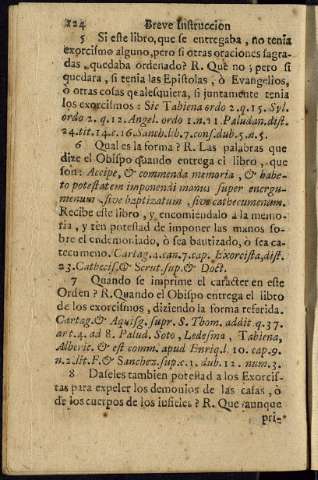 224 Breve Instruccion
5 Si este libro, que se entregaba, no tenia
exorcismo alguno, pero si otras oraciones sagra-
das, quedaba ordenado? R. Que no; pero si
quedara, si tenia las Epistolas, ò Evangelios,
ò otras cosas qualesquiera, si juntamente tenia
los exorcismos: Sic Tabiena ordo 2. q. 15. Syl.
ordo 2. q. 12. Angel. ordo 1. n. 21. Paludan. dist.
24. tit. 14. c. 16. Sanch. lib. 7. cons. dub. 5. n. 5.
6 Qual es la forma? R. Las palabras que
dize el Obispo quando entrega el libro, que
son: Accipe, & commenda memoria, & habe-
to potestatem imponendi manus super energu-
menum, sive baptizatum, sive cathecumenum.
Recibe este libro, y encomiendalo à la memo-
ria, y ten potestad de imponer las manos so-
bre el endemoniado, ò sea bautizado, ò sea ca-
tecumeno. Cartag. 4. can. 7. cap. Exorcista, dist.
23. Cathecis. & Scrut. sup. & Doct.
7 Quando se imprime el caracter en este
Orden? R. Quando el Obispo entrega el libro
de los exorcismos, diziendo la forma referida.
Cartag. & Aquisg. supr. S. Thom. addit q. 37.
art. 4. ad 8. Palud. Soto, Ledesma, Tabiena,
Alberic. & est comm. apud Enriq. l. 10. cap. 9.
n. 2. lit. F. & Sanchez. sup. c. 1. dub. 12. num. 3.
8 Daseles tambien potestad a los Exorcis-
tas para expeler los demonios de las casas, ò
de los cuerpos de los infieles? R. Que aunque
pri-